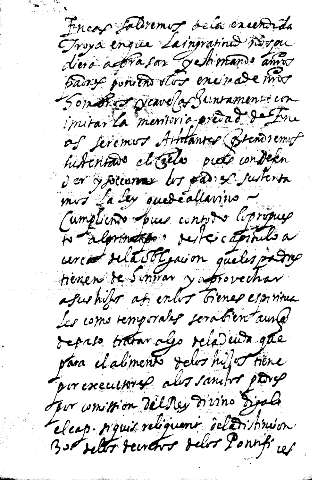 Eneas saldremos de la encendida
Troya en que la ingratitud nos pu
diera abrasar y estimando a nros
padres poniendolos encima de nros
hombros y cavezas juntamente con
imitar la memoria piedad de Ene
as seremos Athlantes q tendremos
sustentado el cielo pues con defen
der y socorrer los padres susten ta
mos la ley que de alla vino
Cumpliendo pues con todo lo propues
to al principio deste capitulo a
cerca de la obligacion que los padres
tienen de honrrar y aprovechar
a sus hijos asi en los bienes espiritua
les como temporales sera bien aunq
de paso tratar algo de la deuda que
para el alimento de los hijos tiene
por executores a los sanctos padres
por comission del Rey divino digalo
el cap. si quis reliquerit de la distincion
30 de los decretos de los Pontifi
ces